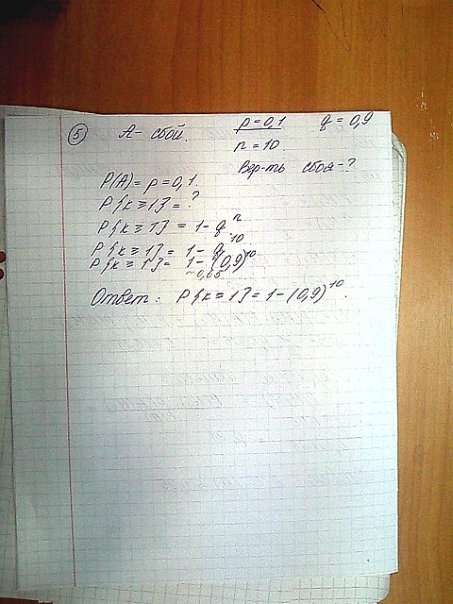 ⑤ А - сбой. p = 0,1 q = 0,9
n = 10
Вер-ть сбоя - ?
P(A) = p = 0,1.
P{k ≥ 1} = ?
P{k ≥ 1} = 1 - qⁿ
P{k ≥ 1} = 1 - q¹⁰
P{k ≥ 1} = 1 - (0,9)¹⁰
~ 0,65
Ответ: P{k ≥ 1} = 1 - (0,9)¹⁰.